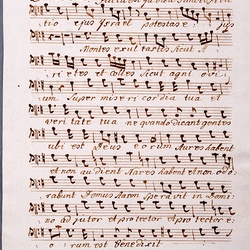 tio ejus Israel potestas ejus
Montes exultastis sicut a
rietes et colles sicut agni ovi
um super misericordia tua et
veritate tua nequando dicant gentes
ubi est Deus eorum Aures habent
et non audient Nares habent et non odo
rabunt Domus Aaron speravit in Domi
no adjutor eorum et protector
orum est benedixit